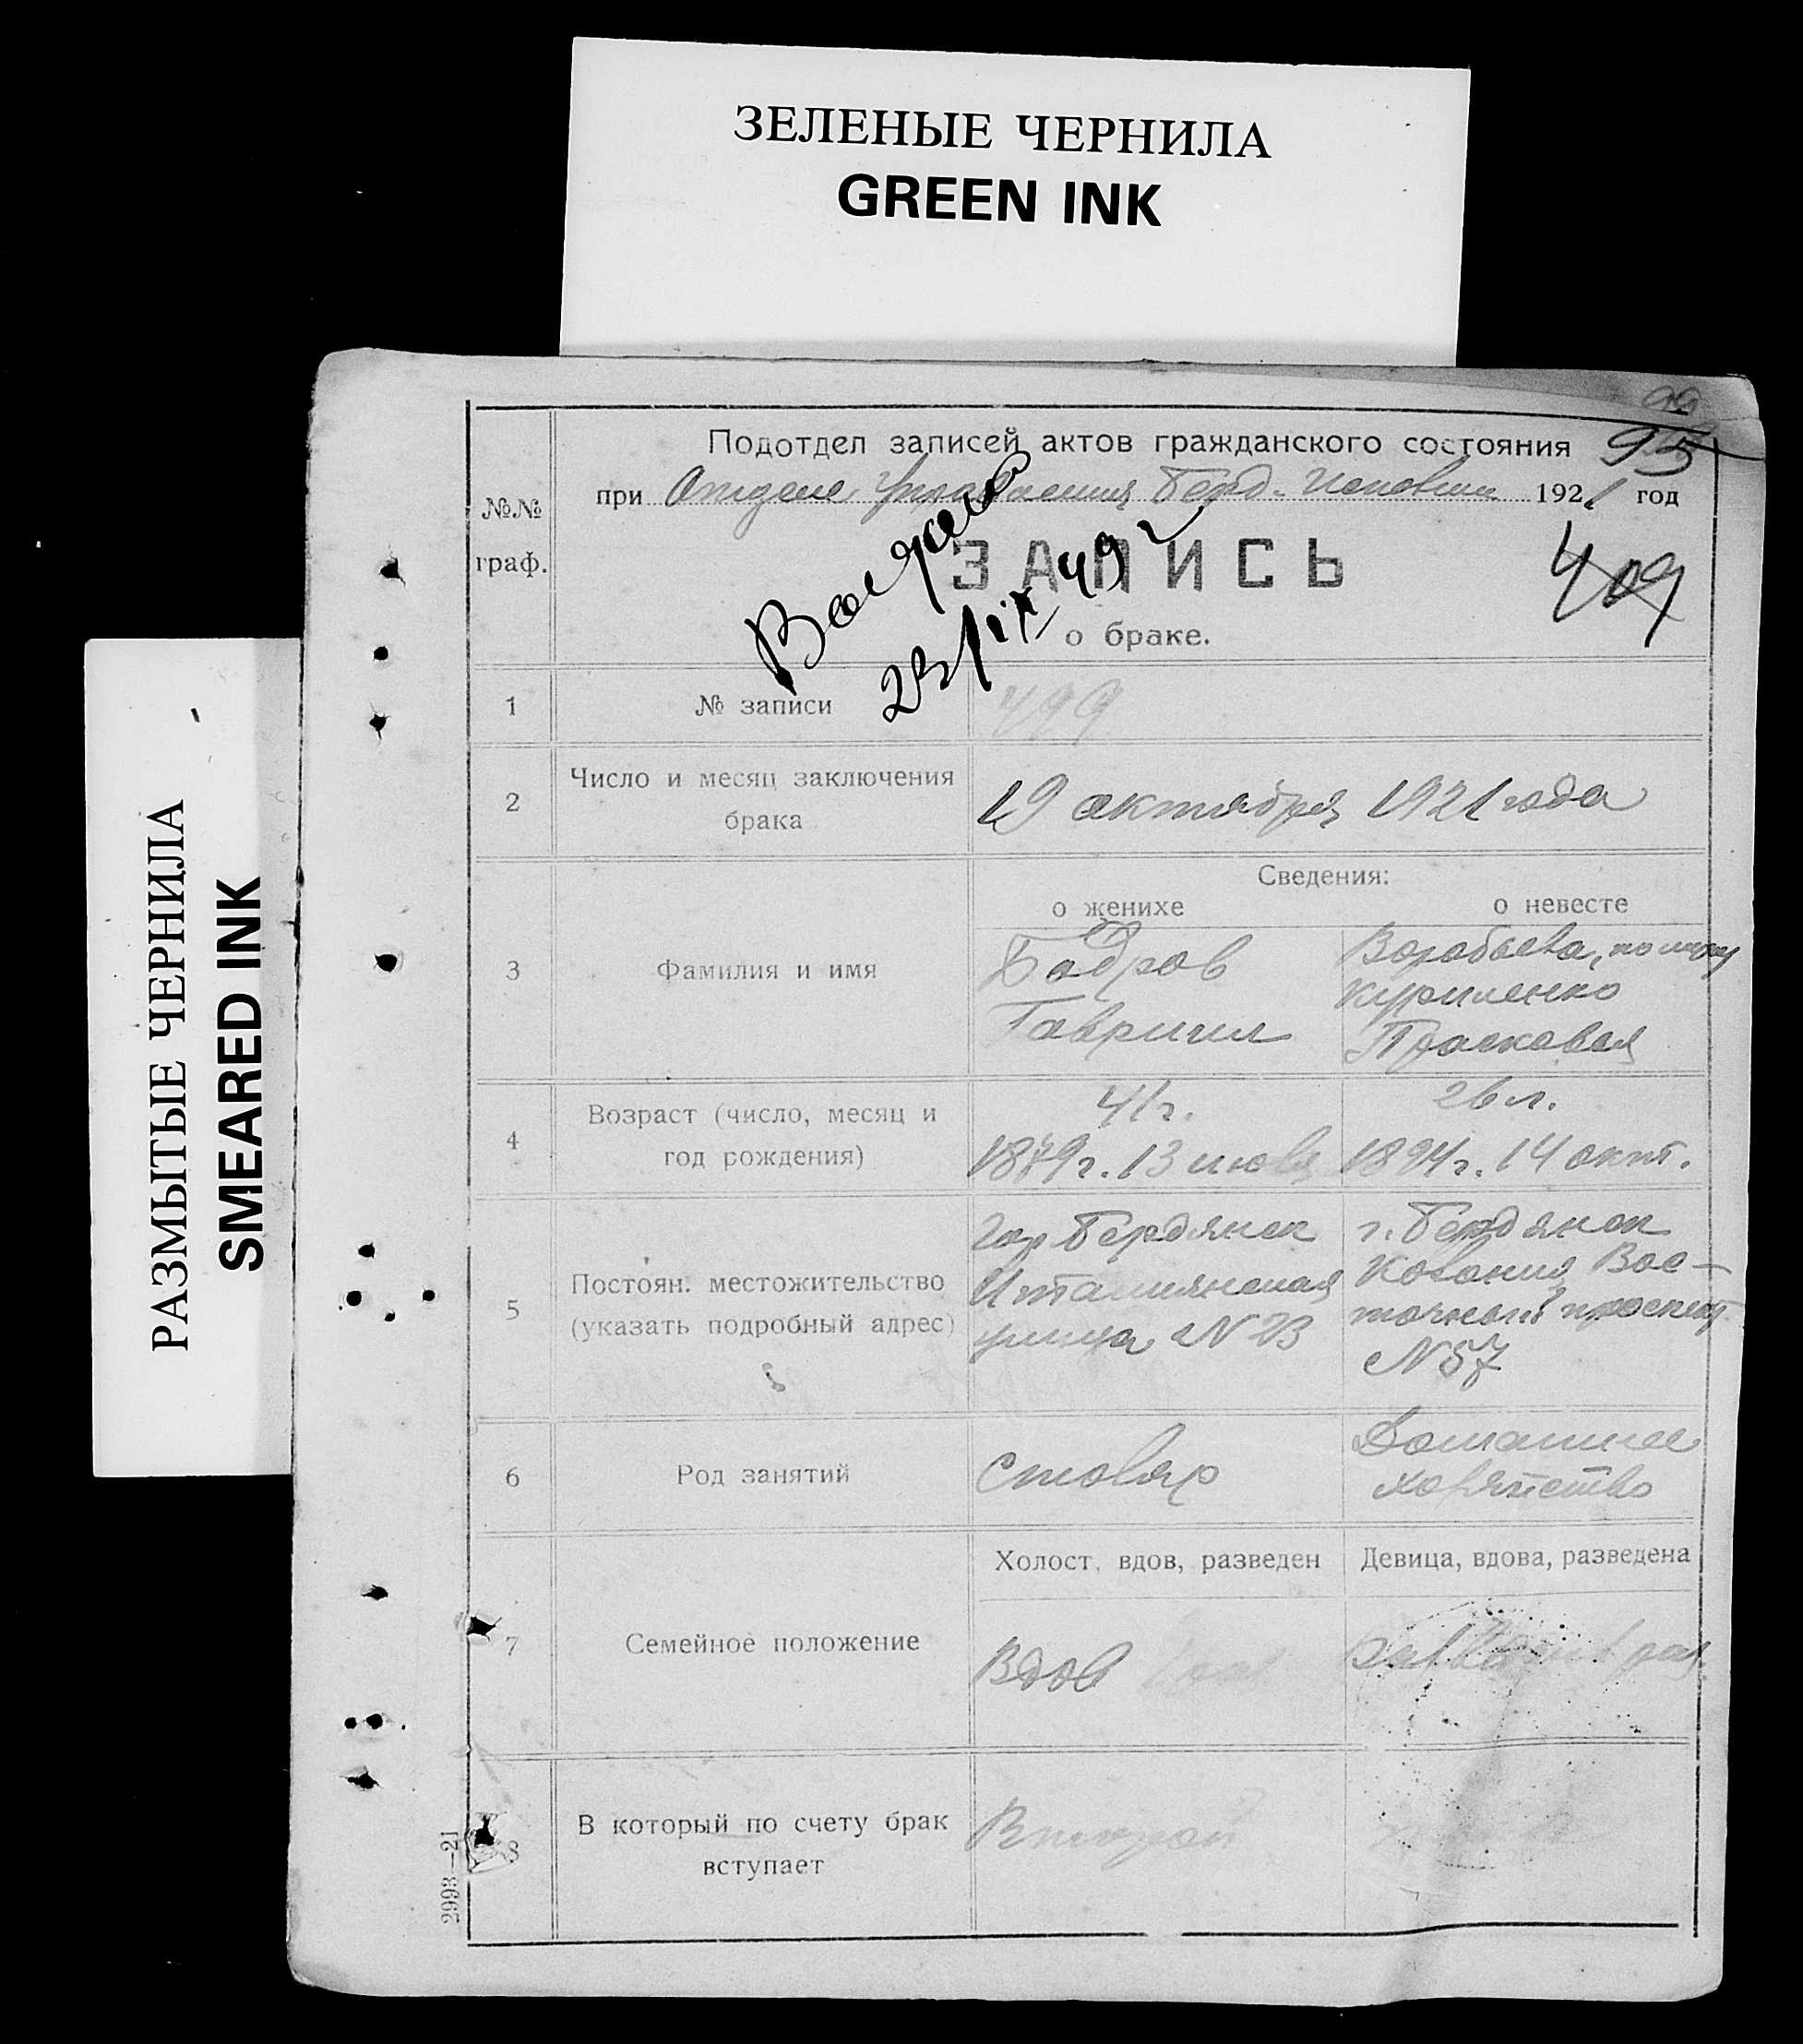 ЗЕЛЕНЫЕ ЧЕРНИЛА
GREEN INK
РАЗМЫТЫЕ ЧЕРНИЛА
SMEARED INK
95
Подотдел записей актов гражданского состояния
при Отделе Управления Берд. Исполкома 1921 год
№№
граф.
ЗАПИСЬ
409
о браке.
23/IX 49 г
1 № записи 499
2 Число и месяц заключения
брака
19 октября 1921 года
Сведения:
о женихе о невесте
3 Фамилия и имя
Бодров
Гавриил
Воробьева, по мужу
Куриленко
Прасковья
4 Возраст (число, месяц и
год рождения)
41 г.
1879 г. 13 июля
26 л.
1894 г. 14 окт.
5 Постоян. местожительство
(указать подробный адрес)
Гор Бердянск
Итальянская
улица № 23
г. Бердянск
Колония Вос-
точный проспект
№ 57
6 Род занятий
Столяр
Домашнее
хозяйство
7 Семейное положение
Холост, вдов, разведен Девица, вдова, разведена
Вдов
8 В который по счету брак
вступает
Второй
2993—21